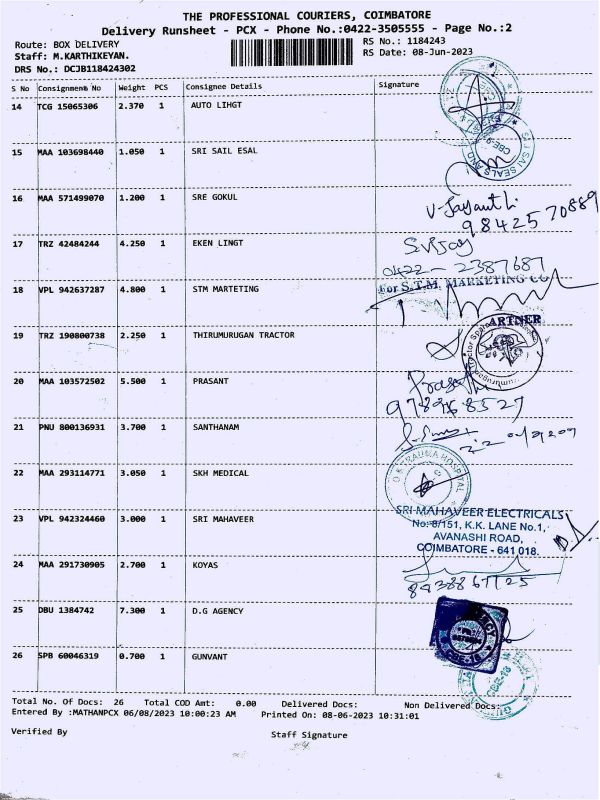 THE PROFESSIONAL COURIERS, COIMBATORE
Delivery Runsheet - PCX - Phone No.:0422-3505555 - Page No.:2
Route: BOX DELIVERY RS No.: 1184243
Staff: M.KARTHIKEYAN. RS Date: 08-Jun-2023
DRS No.: DCJB118424302
S No Consignment No Weight PCS Consignee Details Signature
14 TCG 15065306 2.370 1 AUTO LIHGT
15 MAA 103698440 1.050 1 SRI SAIL ESAL
SRI SAI SEALS AND
CBE-9
16 MAA 571499070 1.200 1 SRE GOKUL
V-Jayanthi
9842570889
17 TRZ 42484244 4.250 1 EKEN LINGT
S.Vijay
0422-2387687
18 VPL 942637287 4.800 1 STM MARTETING
For S.T.M. MARKETING CO
ARTNER
19 TRZ 190800738 2.250 1 THIRUMURUGAN TRACTOR
20 MAA 103572502 5.500 1 PRASANT
21 PNU 800136931 3.700 1 SANTHANAM
22 MAA 293114771 3.050 1 SKH MEDICAL
TRAUMA HOSPITAL
23 VPL 942324460 3.000 1 SRI MAHAVEER
SRI MAHAVEER ELECTRICALS
No:8/151, K.K. LANE No.1,
AVANASHI ROAD,
COIMBATORE - 641 018.
24 MAA 291730905 2.700 1 KOYAS
25 DBU 1384742 7.300 1 D.G AGENCY
CBE-18
26 SPB 60046319 0.700 1 GUNVANT
CBE-18
Total No. Of Docs: 26 Total COD Amt: 0.00 Delivered Docs: Non Delivered Docs:
Entered By :MATHANPCX 06/08/2023 10:00:23 AM Printed On: 08-06-2023 10:31:01
Verified By Staff Signature